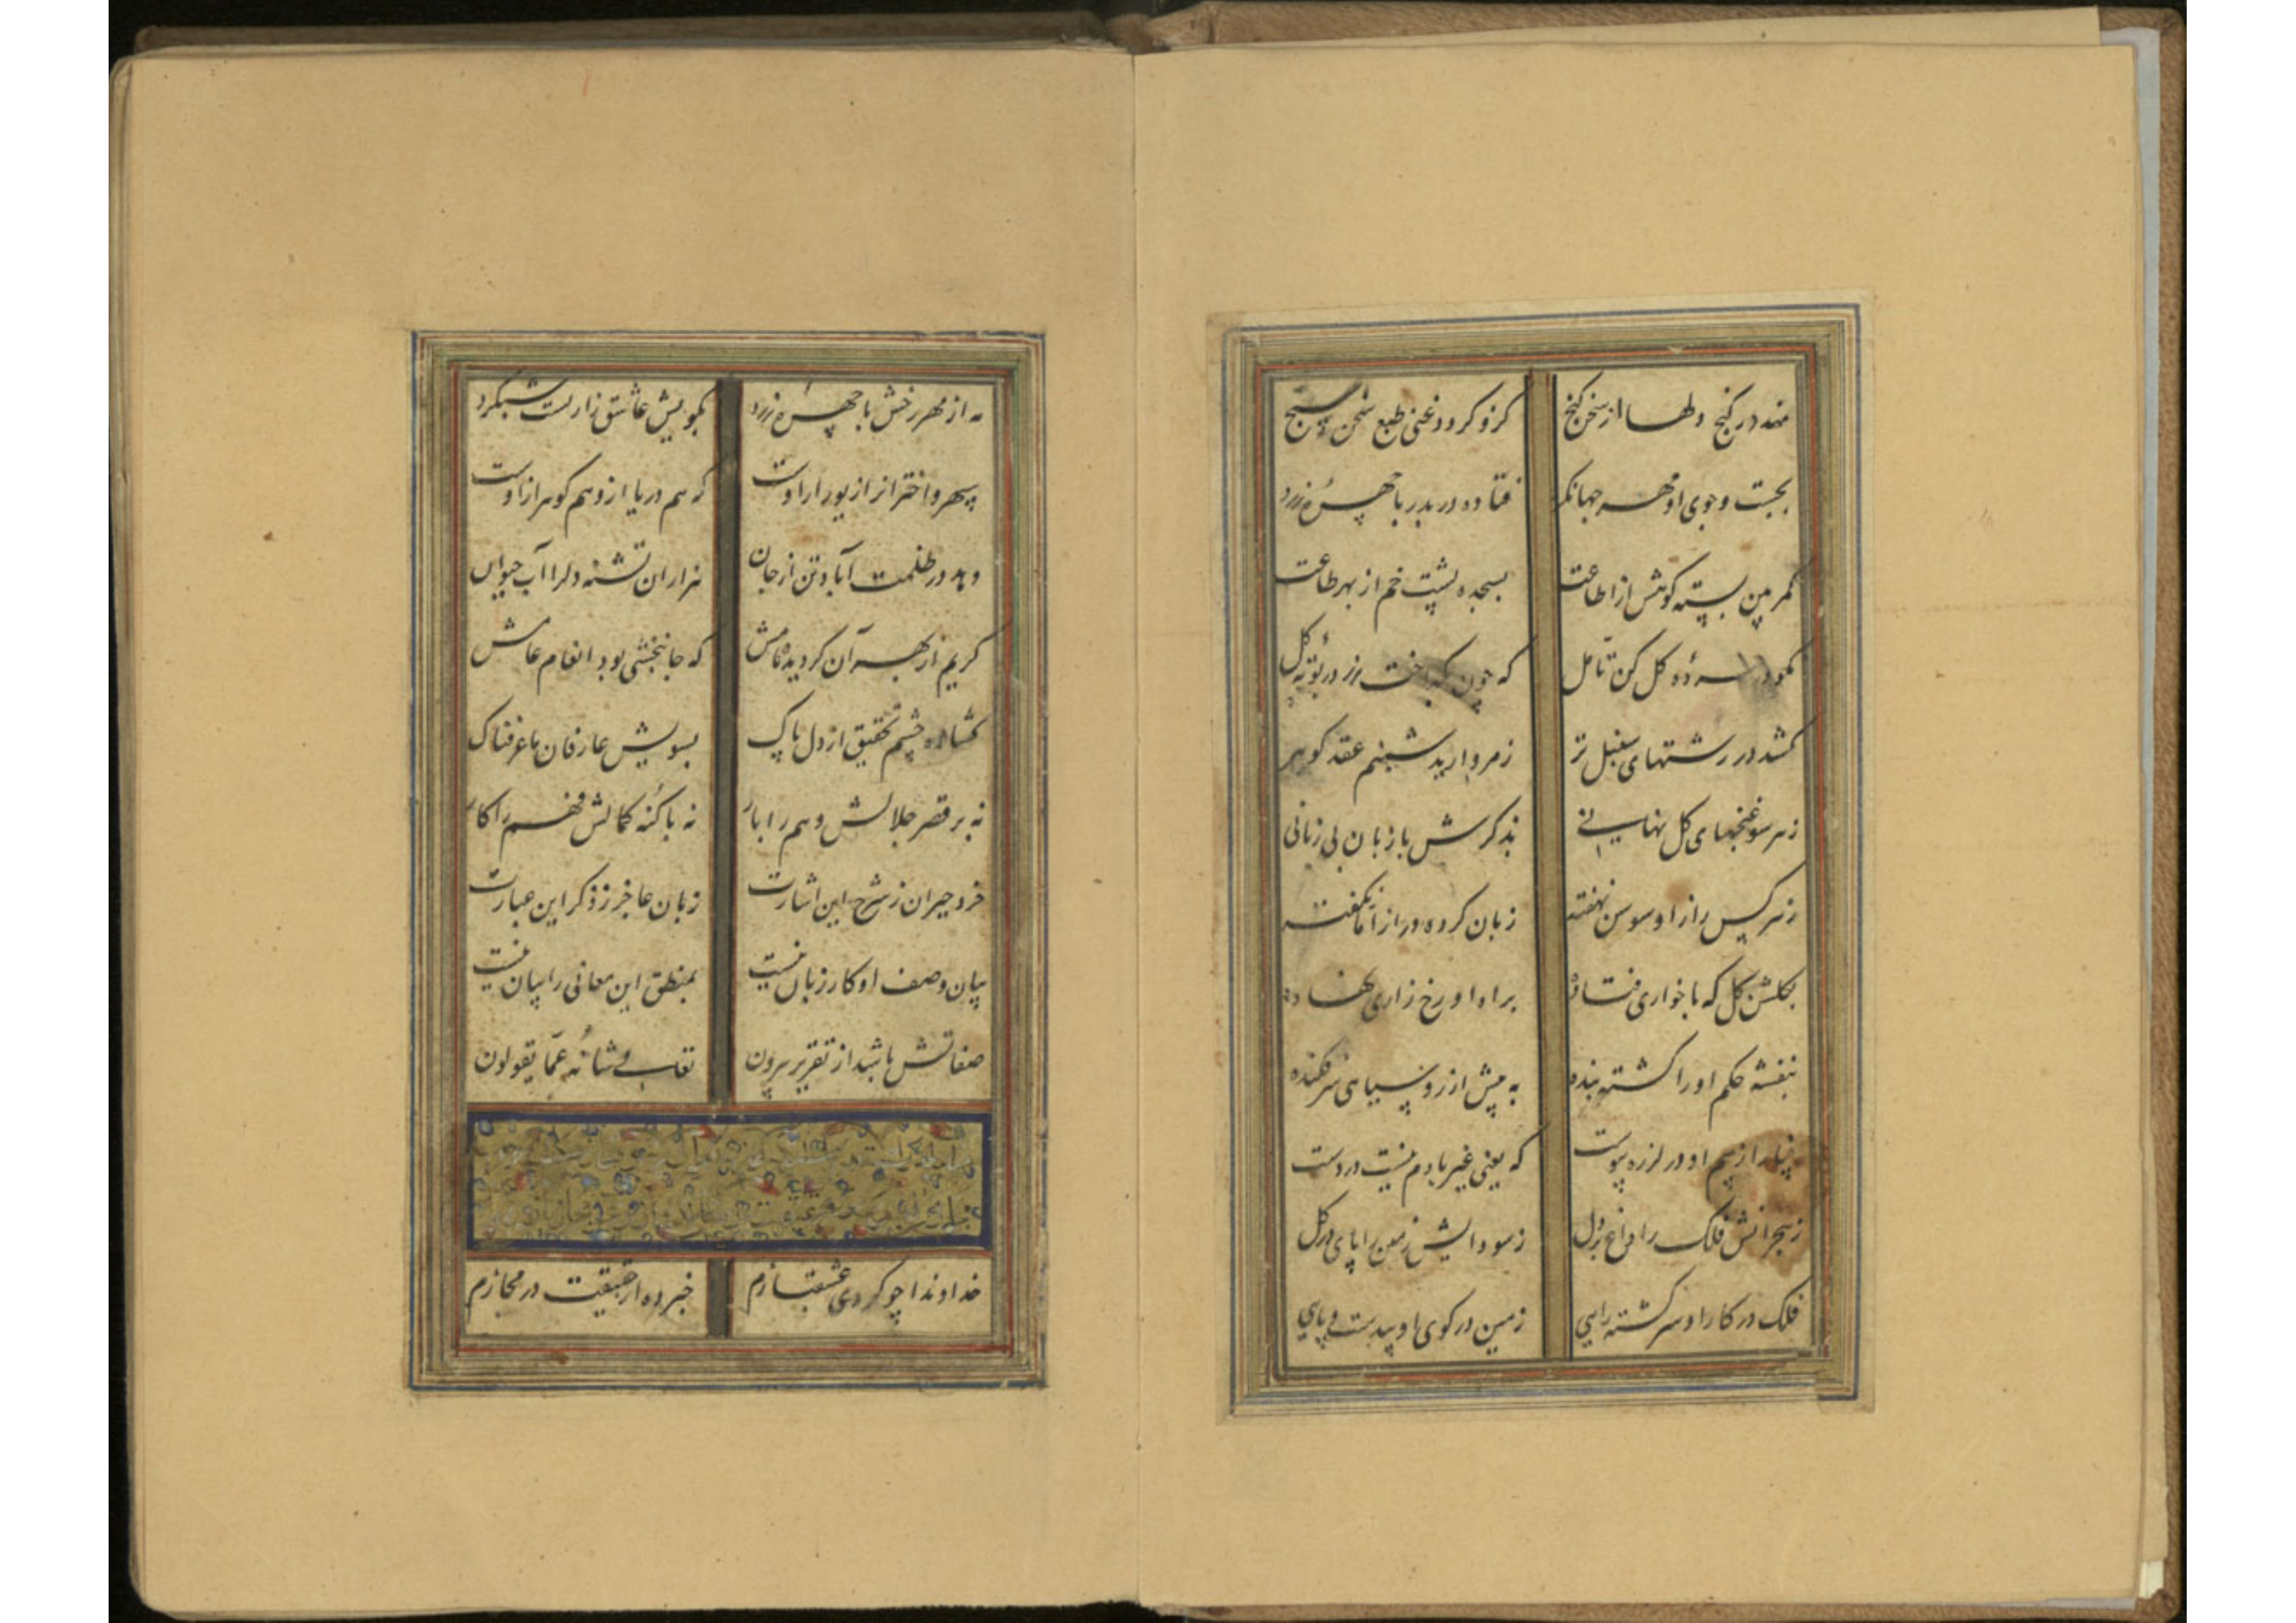 نهد در کنج دلها از سخن گنج کزو گردد غنی طبع سخن سنج
بجست و جوی او مهر جهانگرد فتاده در بدر با چهرهٔ زرد
کمر بین بسته کوهش از اطاعت بسجده پشت خم از بهر طاعت
گل کن تأمل که چون زر در بوتهٔ گل
کشد در رشتهای سنبل تر ز مروارید شبنم عقد گوهر
ز هر سو غنچهای گل نهانی بذکرش با زبان بی زبانی
ز نرگس راز او سوسن نهفته زبان کرده دراز اما نگفته
بگلشن گل که با خواری فتاده براه او رخ زاری نهاده
بنفشه حکم او را گشته بنده به پیش از رو سیاهی سر فکنده
چنار از بیم او در لرزه پیوست که یعنی غیر بادم نیست در دست
ز هجرانش فلک را داغ بر دل ز سودایش زمین را پای در گل
فلک در کار او سرگشته رایی زمین در کوی او بیدست و پایی
مه از مهر رخش با چهرهٔ زرد بکویش عاشق زاریست شبگرد
سپهر و اختران را زیور ار اوست که هم دریا ازو هم گوهر ازوست
دهد در ظلمت آباد تن از جان هزاران تشنه دل را آب حیوان
کریم از بهر آن گردیده نامش که جانبخشی بود انعام عامش
گشاده چشم تحقیق از دل پاک بسویش عارفان ما عرفناک
نه بر قصر جلالش وهم را بار نه با کنه کمالش فهم را کار
خرد حیران ز شرح این اشارت زبان عاجز ز ذکر این عبارت
بیان وصف او کار زبان نیست بمنطق این معانی را بیان نیست
صفاتش باشد از تقریر بیرون تعالی شأنه عما یقولون
خداوندا چو کردی عشقبازم خبر ده از حقیقت در مجازم